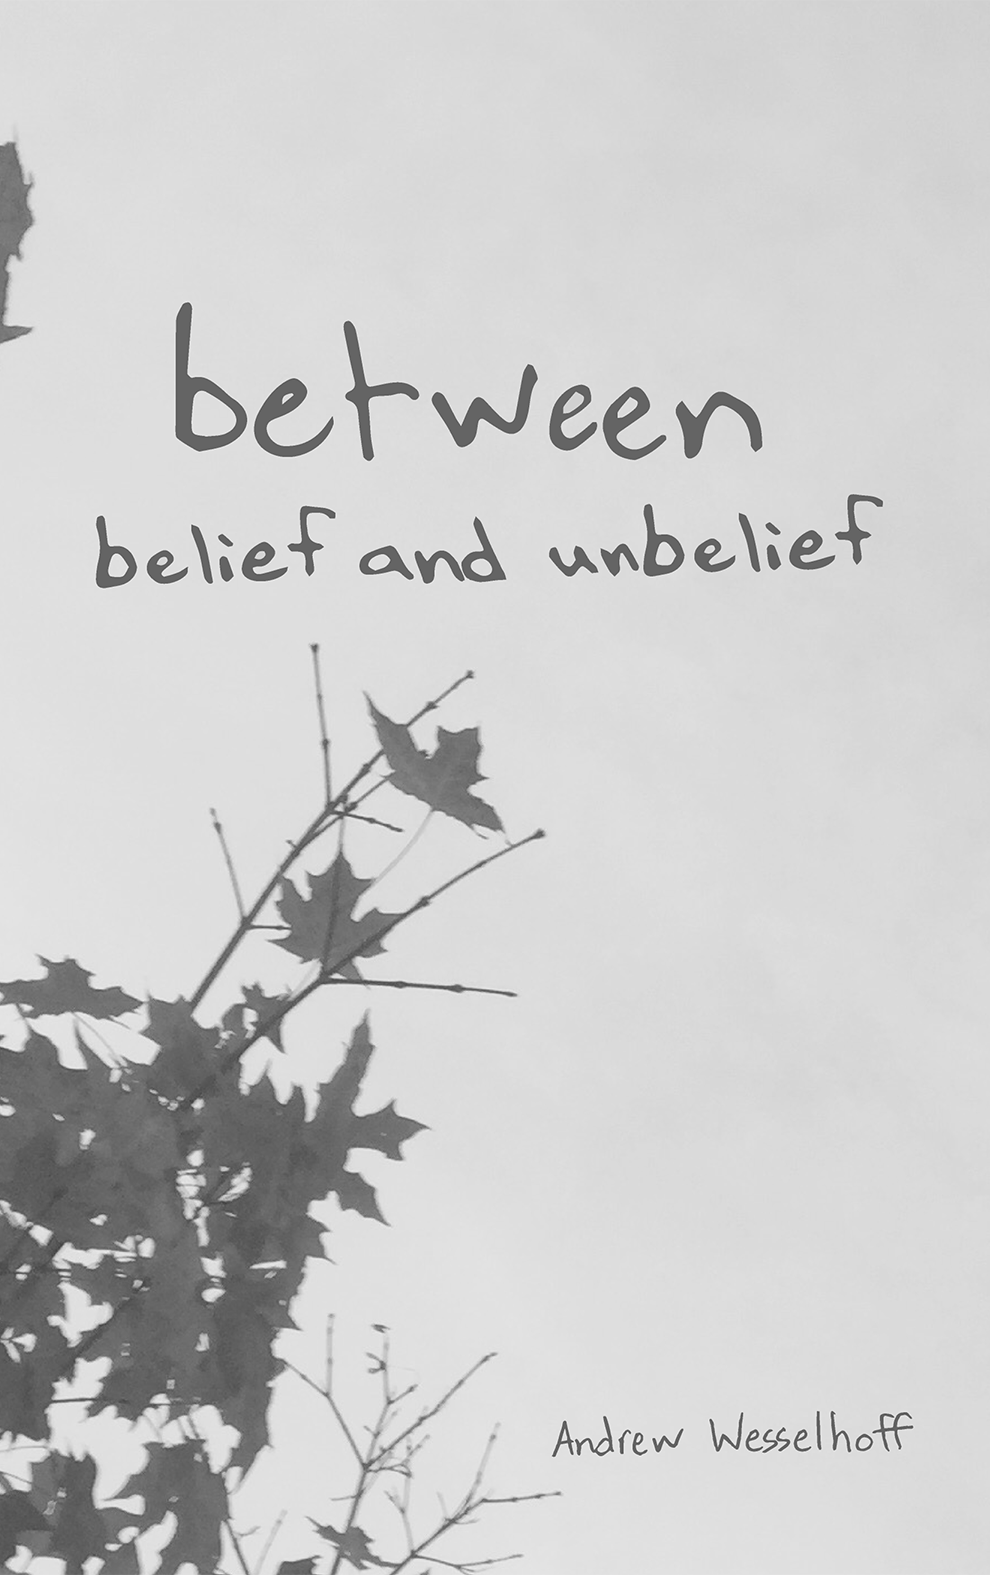 between
belief and unbelief
Andrew Wesselhoff